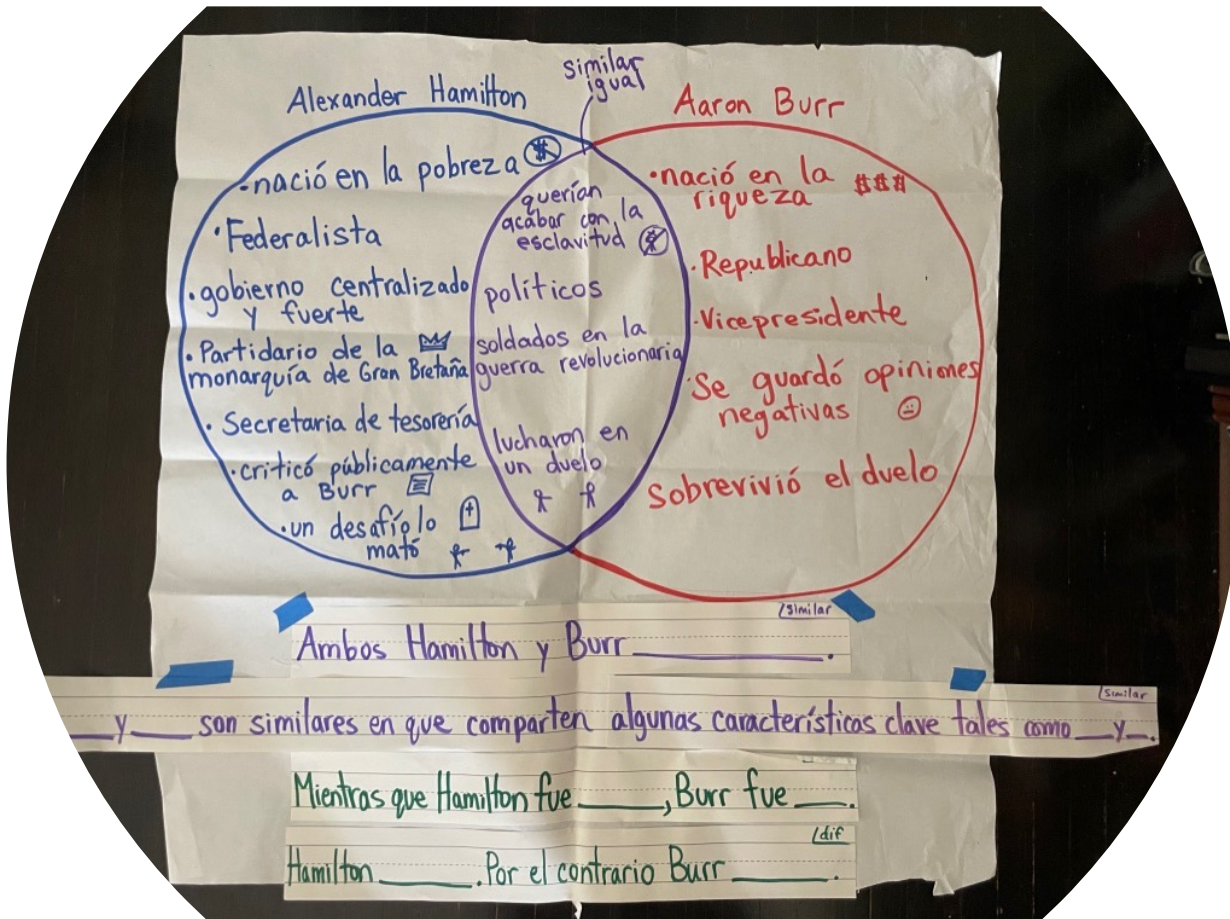 similar
igual
Alexander Hamilton
• nació en la pobreza $
• Federalista
• gobierno centralizado
y fuerte
• Partidario de la
monarquía de Gran Bretaña
• Secretaria de tesorería
• criticó públicamente
a Burr
• un desafío lo
mató
querían
acabar con la
esclavitud
políticos
soldados en la
guerra revolucionaria
lucharon en
un duelo
Aaron Burr
• nació en la $$$
riqueza
• Republicano
• Vicepresidente
• Se guardó opiniones
negativas
Sobrevivió el duelo
/similar
Ambos Hamilton y Burr ______.
/similar
___y___ son similares en que comparten algunas características clave tales como __y__.
Mientras que Hamilton fue _____, Burr fue ___.
/dif
Hamilton _____. Por el contrario Burr _____.